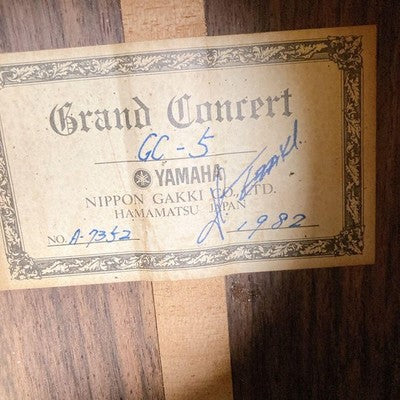 Grand Concert
GC-5
YAMAHA
NIPPON GAKKI CO., LTD.
HAMAMATSU JAPAN
NO. A-7352 1982